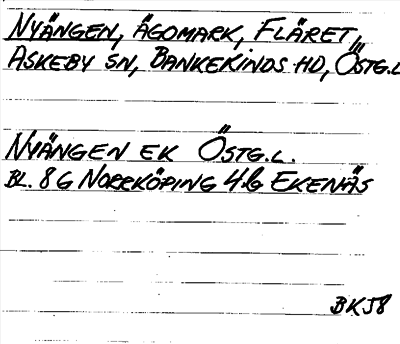 NYÄNGEN, ÄGOMARK, FLÄRET,
ASKEBY SN, BANKEKINDS HD, ÖSTG.L
NYÄNGEN EK ÖSTG.L.
BL. 8 G NORRKÖPING 4b EKENÄS
BKJ8